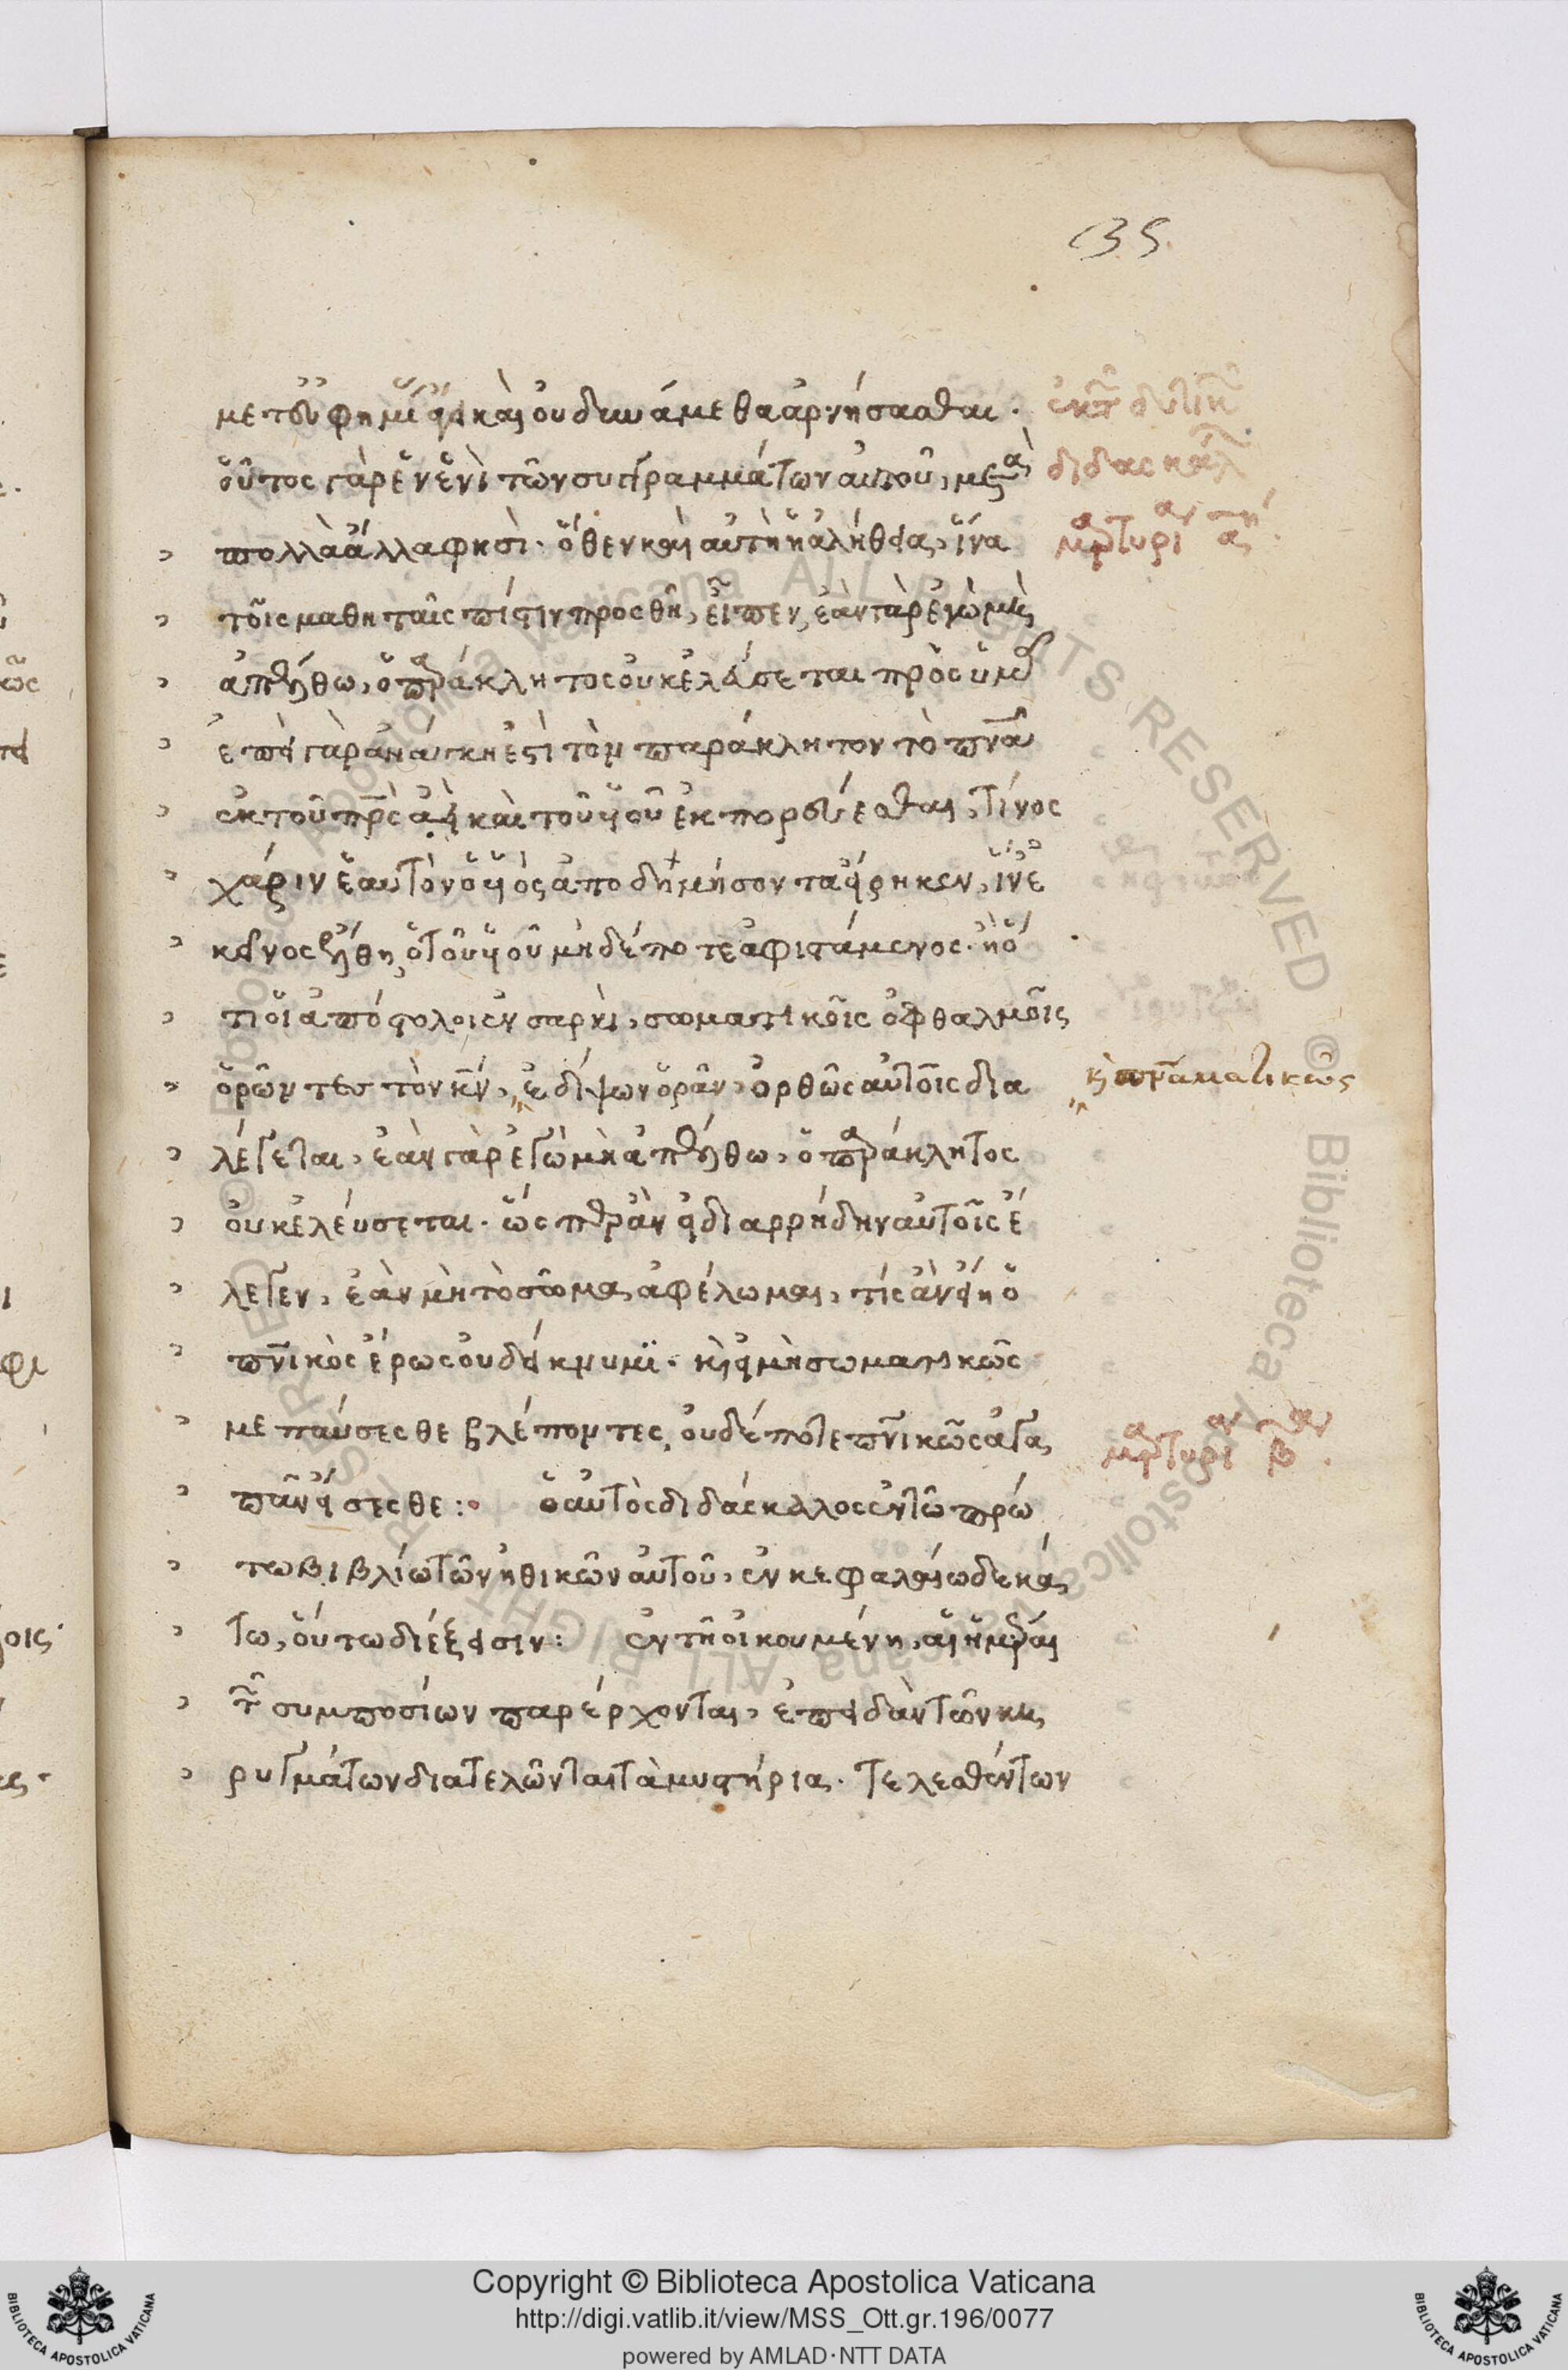 135.
με τοῦ φημὶ εἶναι καὶ οὐ δυνάμεθα ἀρνήσασθαι·
οὗτος γὰρ ἐν ἑνὶ τῶν συγγραμμάτων αὐτοῦ, μετὰ
πολλὰ ἄλλα φησί· ὅθεν καὶ αὐτὴ ἡ ἀλήθεια, ἵνα
τοῖς μαθηταῖς πίστιν προσθῇ, εἶπεν, ἐὰν γὰρ ἐγὼ μὴ
ἀπέλθω, ὁ παράκλητος οὐκ ἐλεύσεται πρὸς ὑμᾶς
ἐπεὶ γὰρ ἀνάγκη ἐστὶ τὸν παράκλητον τὸ πνᾶ
ἐκ τοῦ πρς ἀεὶ καὶ τοῦ υἱοῦ ἐκπορεύεσθαι, τίνος
χάριν ἑαυτὸν ὁ υἱὸς ἀποδημήσοντα εἴρηκεν, ἵν' ἐ
κεῖνος ἔλθῃ, ὁ τοῦ υἱοῦ μηδέποτε ἀφιστάμενος· ἢ ὅ
τι οἱ ἀπόστολοι ἐν σαρκὶ, σωματικοῖς ὀφθαλμοῖς
ὁρῶντες τὸν κν, ἐδίψων ὁρᾶν, ὀρθῶς αὐτοῖς δια
λέγεται, ἐὰν γὰρ ἐγὼ μὴ ἀπέλθω, ὁ παράκλητος
οὐκ ἐλεύσεται· ὥσπερ ἂν εἰ διαρρήδην αὐτοῖς ἔ
λεγεν, ἐὰν μὴ τὸ σῶμα ἀφέλωμαι, τίς ἂν εἴη ὁ
πνικὸς ἔρως οὐ δείκνυμι· κὶ εἰ μὴ σωματικῶς
με παύσεσθε βλέποντες, οὐδέποτε πνικῶς ἀγα
πᾶν εἴσεσθε: ὁ αὐτὸς διδάσκαλος ἐν τῶ πρώ
τω βιβλίω τῶν ἠθικῶν αὐτοῦ, ἐν κεφαλαίω δεκά
τω, οὕτω διέξεισιν: ἐν τῇ οἰκουμένη, αἱ ἡμέραι
τῶν συμποσίων παρέρχονται, ἐπειδὰν τῶν κη
ρυγμάτων διατελῶνται τὰ μυστήρια· τελεσθέντων
διδασκάλ
μαρτυρίαν
κὶ πνευματικῶς
μαρτυρίαν β αν
Copyright © Biblioteca Apostolica Vaticana
http://digi.vatlib.it/view/MSS_Ott.gr.196/0077
powered by AMLAD·NTT DATA
BIBLIOTECA APOSTOLICA VATICANA
BIBLIOTECA APOSTOLICA VATICANA